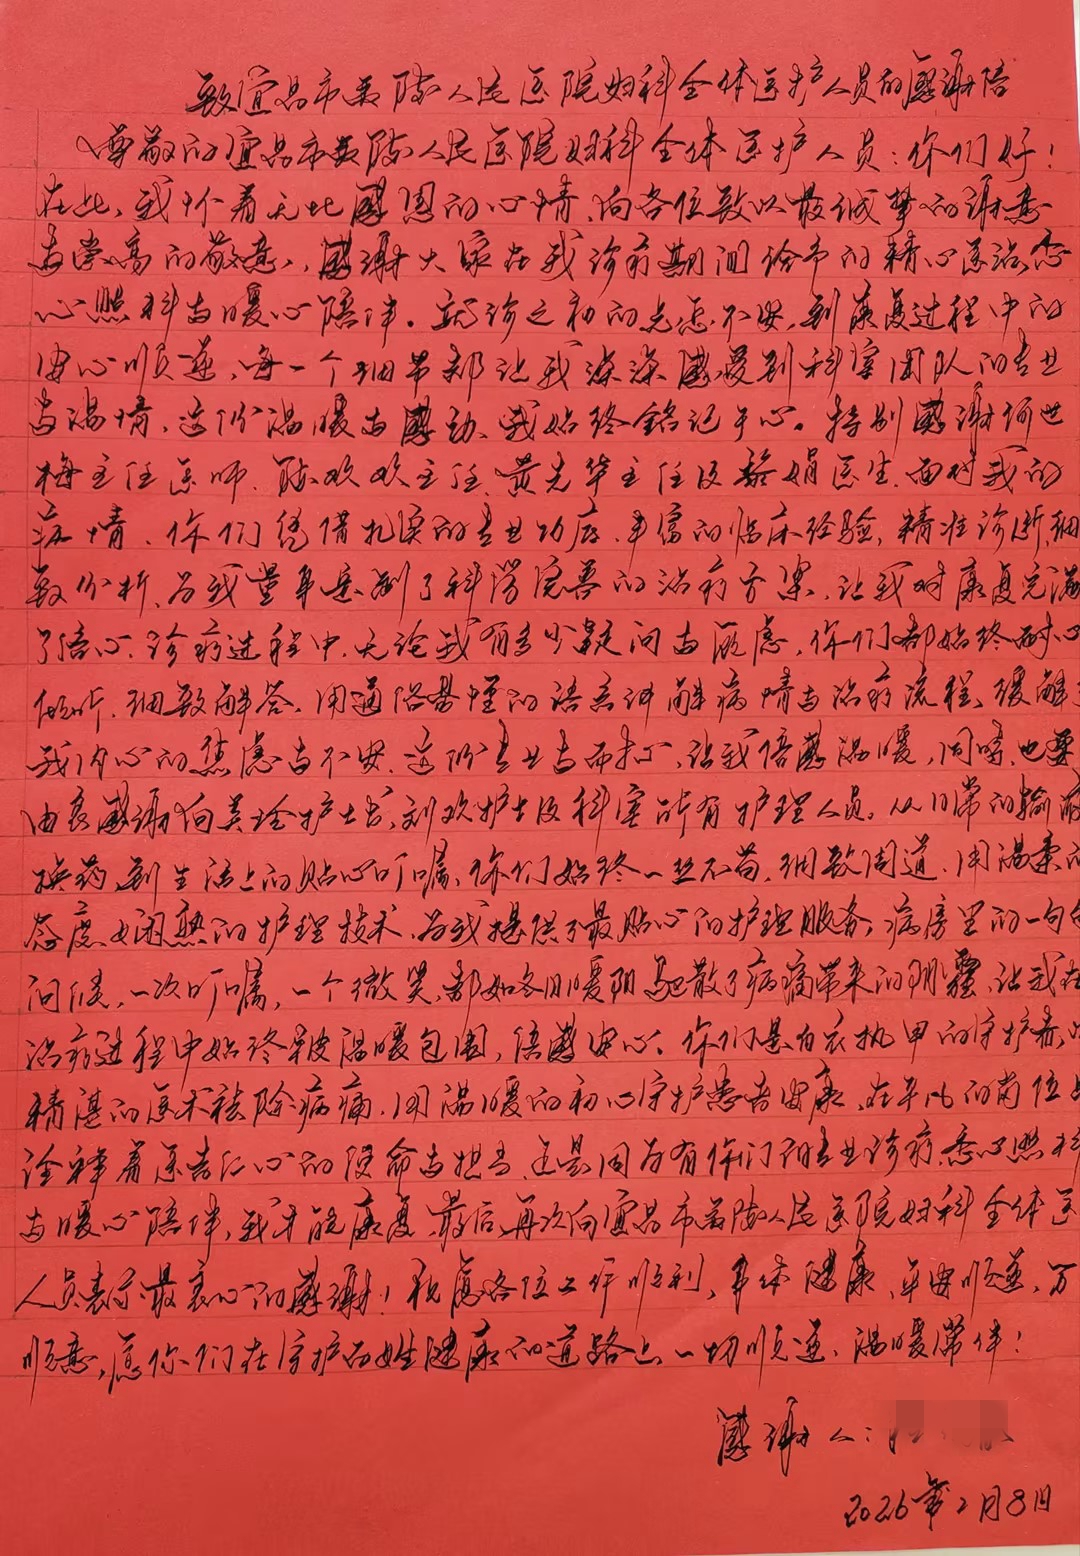 致宜昌市夷陵人民医院妇科全体医护人员的感谢信
尊敬的宜昌市夷陵人民医院妇科全体医护人员：你们好！
在此，我怀着无比感恩的心情，向各位致以最诚挚的谢意
与崇高的敬意，感谢大家在我诊疗期间给予的精心医治、悉
心照料与暖心陪伴。就诊之初的忐忑不安，到康复过程中的
安心顺遂，每一个细节都让我深深感受到科室团队的专业
与温情，这份温暖与感动、我始终铭记于心。特别感谢何世
梅主任医师、陈欢欢主任、黄先华主任及骆娟医生，面对我的
病情，你们凭借扎实的专业功底、丰富的临床经验，精准诊断，细
致分析，为我量身定制了科学完善的治疗方案，让我对康复充满
了信心。诊疗过程中，无论我有多少疑问与顾虑，你们都始终耐心
倾听、细致解答，用通俗易懂的语言讲解病情与治疗流程，缓解了
我内心的焦虑与不安，这份专业与耐心，让我倍感温暖，同时，也要
由衷感谢向美玲护士长、刘欢护士及科室所有护理人员。从日常的输液
换药，到生活上的贴心叮嘱，你们始终一丝不苟，细致周道，用温柔的
态度、娴熟的护理技术，为我提供了最贴心的护理服务；病房里的一句句
问候，一次叮嘱，一个微笑，都如冬日暖阳，驱散了病痛带来的阴霾，让我在
治疗过程中始终被温暖包围，倍感安心。你们是白衣执甲的守护者，以
精湛的医术祛除病痛，用温暖的初心守护患者安康，在平凡的岗位上
诠释着医者仁心的使命与担当，正是因为有你们的专业诊疗、悉心照料
与暖心陪伴，我才能康复，最后，再次向宜昌市夷陵人民医院妇科全体医
人员表示最衷心的感谢！祝愿各位工作顺利，身体健康，平安顺遂，万
顺意，愿你们在守护百姓健康的道路上一切顺遂、温暖常伴！
感谢人：
2026年2月8日